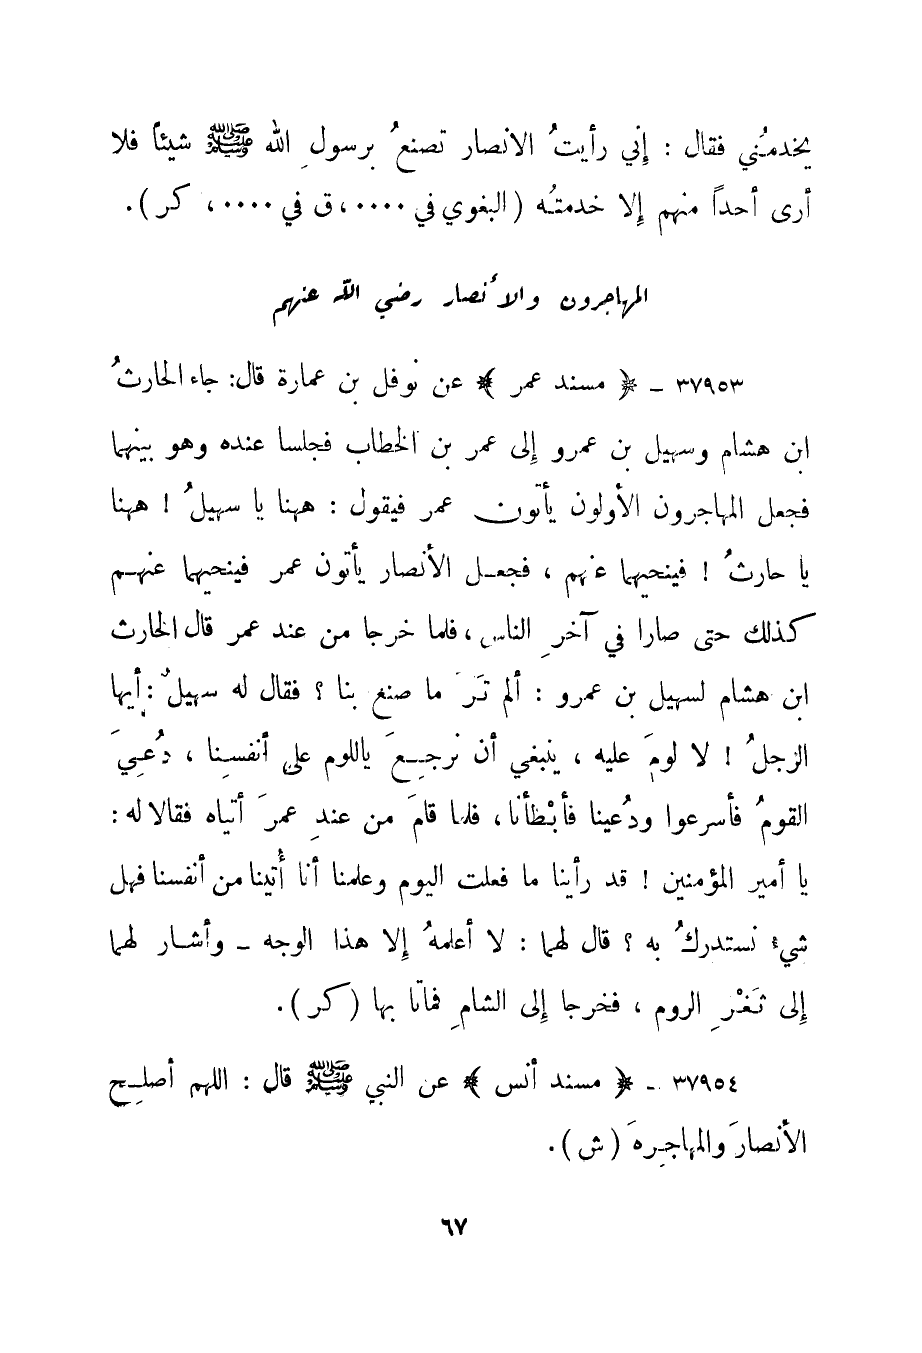 يخدمُني فقال : إني رأيتُ الانصار تصنعُ برسولِ الله ﷺ شيئاً فلا
أرى أحداً منهم إلا خدمتُه ( البغوي في ٠٠٠٠ ، ق في ٠٠٠٠ ، كر ) .
المهاجرون والأنصار رضي الله عنهم
٣٧٩٥٣ ـ ﴿ مسند عمر ﴾ عن نوفل بن عمارة قال: جاء الحارثُ
ابن هشام وسهيل بن عمرو إلى عمر بن الخطاب فجلسا عنده وهو بينهما
فجعل المهاجرون الأولون يأتون عمر فيقول : ههنا يا سهيلُ ! ههنا
يا حارثُ ! فينحيهما عنهم ، فجعل الأنصار يأتون عمر فينحيهما عنهم
كذلك حتى صارا في آخرِ الناس ، فلما خرجا من عند عمر قال الحارث
ابن هشام لسهيل بن عمرو : ألم تَرَ ما صنع بنا ؟ فقال له سهيلٌ : أيها
الرجلُ ! لا لومَ عليه ، ينبغي أن نرجعَ باللوم على أنفسنا ، دُعِيَ
القومُ فأسرعوا ودُعينا فأبْطأنا ، فلما قامَ من عندِ عمرَ أتياه فقالا له :
يا أمير المؤمنين ! قد رأينا ما فعلت اليوم وعلمنا أنا أُتينا من أنفسنا فهل
شيء نستدركُ به ؟ قال لهما : لا أعلمهُ إلا هذا الوجه ـ وأشار لهما
إلى ثَغْرِ الروم ، فخرجا إلى الشامِ فماتا بها ( كر ) .
٣٧٩٥٤ ـ ﴿ مسند أنس ﴾ عن النبي ﷺ قال : اللهم أصلِح
الأنصارَ والمهاجِرهَ ( ش ) .
٦٧